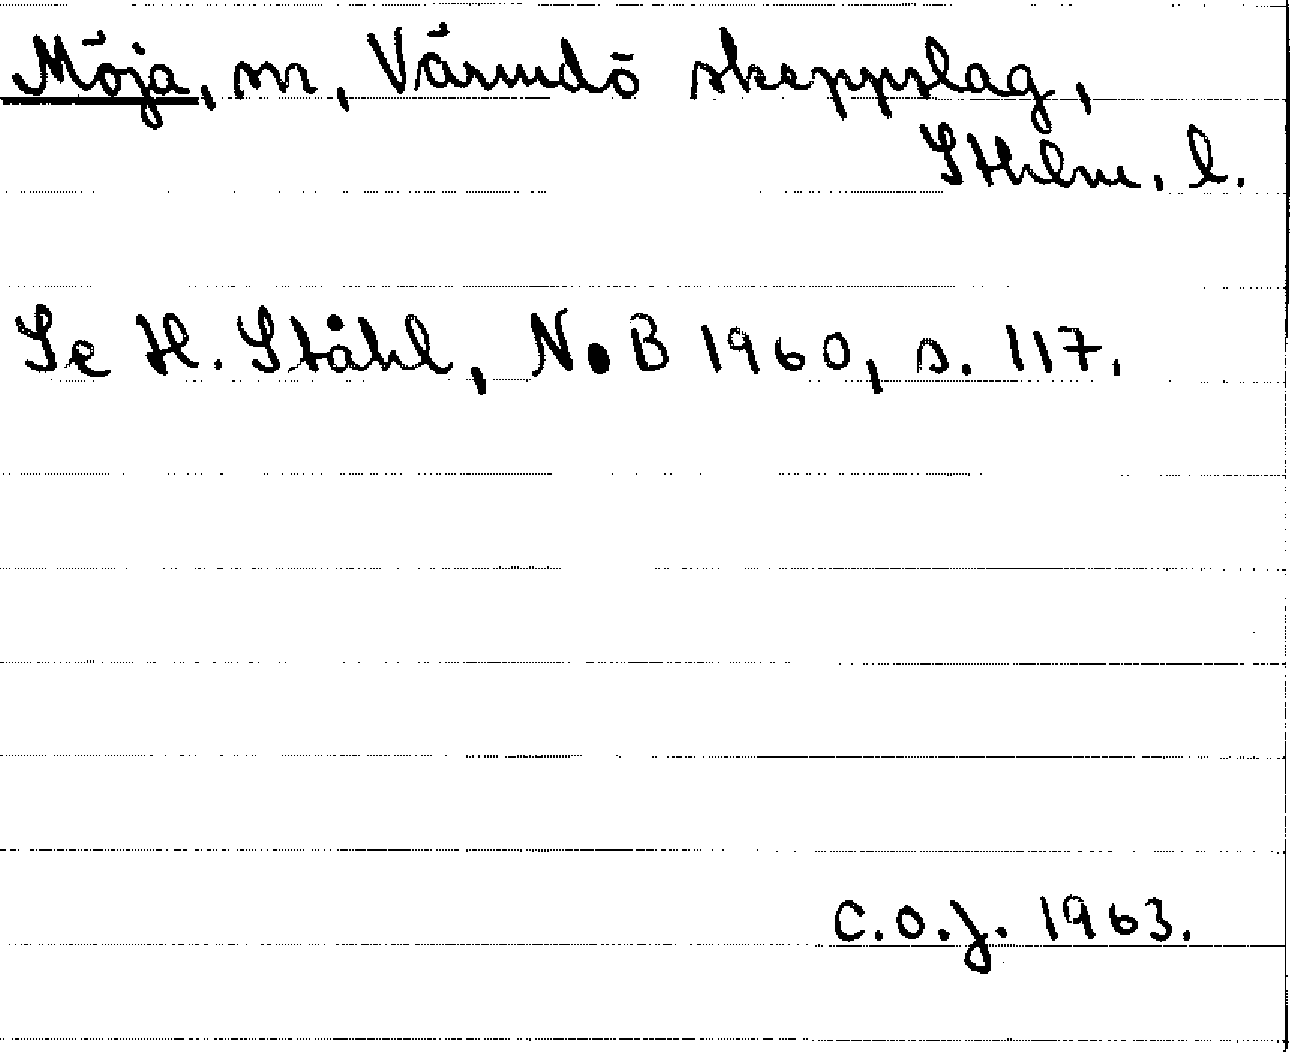 Möja, sn, Värmdö skeppslag,
Sthlm. l.
Se H. Ståhl, NoB 1960, s. 117.
C.O.J. 1963.